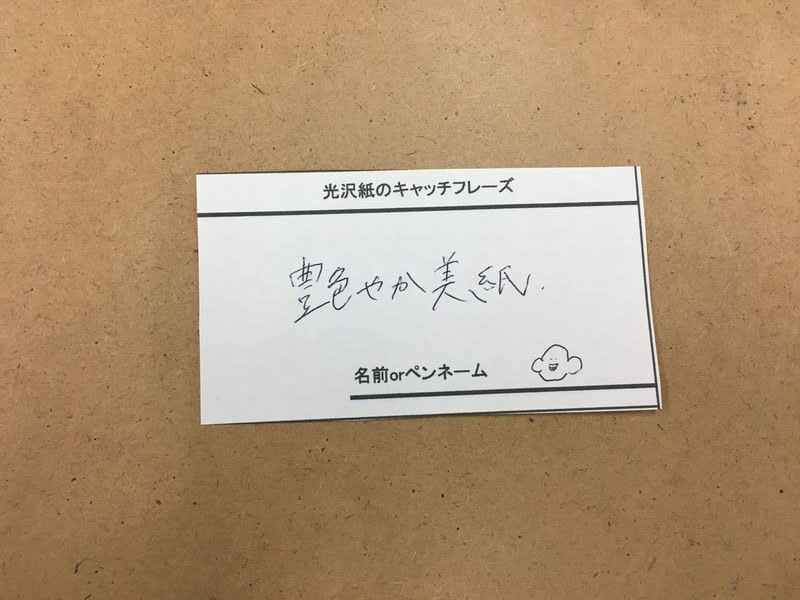 光沢紙のキャッチフレーズ
艶やか美紙.
名前orペンネーム